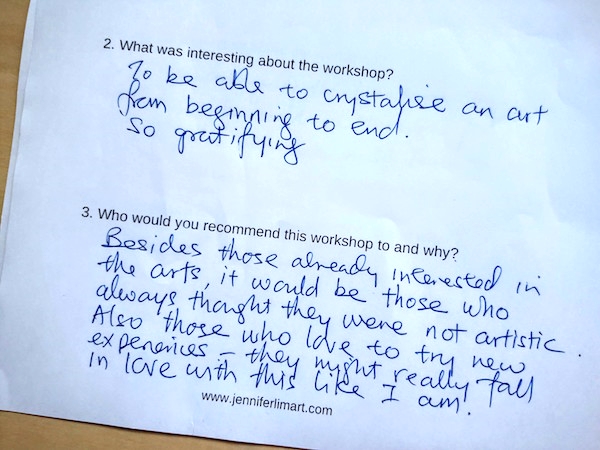 2. What was interesting about the workshop?
To be able to crystalise an art
from beginning to end.
So gratifying
3. Who would you recommend this workshop to and why?
Besides those already interested in
the arts, it would be those who
always thought they were not artistic.
Also those who love to try new
experiences – they might really fall
in love with this like I am!
www.jenniferlimart.com